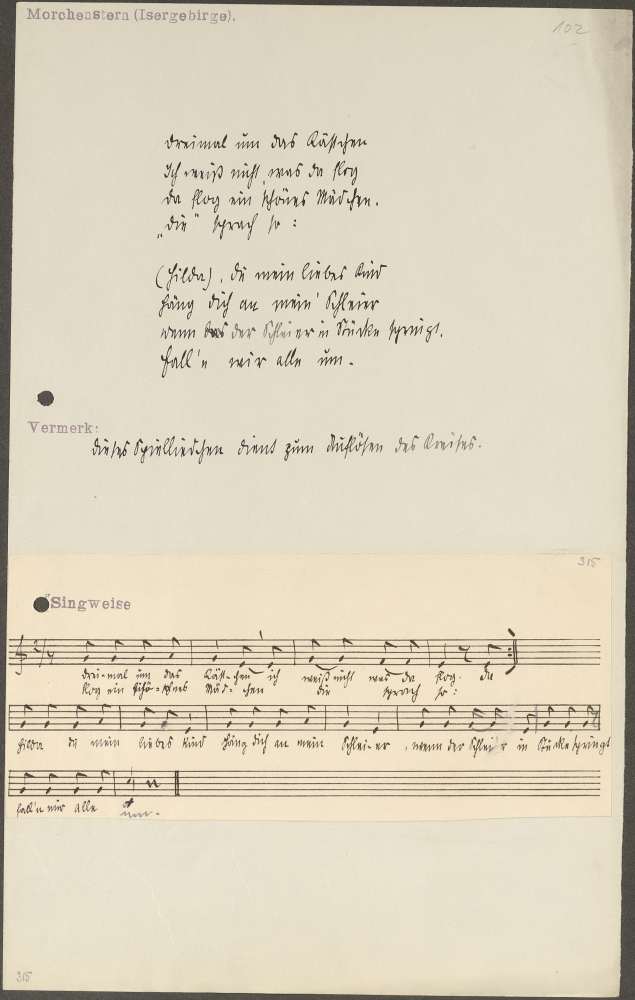 Morchenstern (Isergebirge).
102
Dreimal um das Kästchen
Ich weiß nicht, was da flog
da flog ein schönes Mädchen.
„die" sprach so:
(Hilda), du mein liebes Kind
häng dich an mein' Schleier
wenn der Schleier in Stücke springt.
fall'n wir alle um.
Vermerk:
Dieses Spielliedchen dient zum Auflösen des Kreises.
315
Singweise
drei-mal um das Käst-chen ich weiß nicht was da flog. da
flog ein schö-nes Mäd-chen die sprach so:
Hilda du mein liebes Kind häng dich an mein Schlei-er, wenn der Schlei'r in Stücke springt
fall'n wir alle um.
315